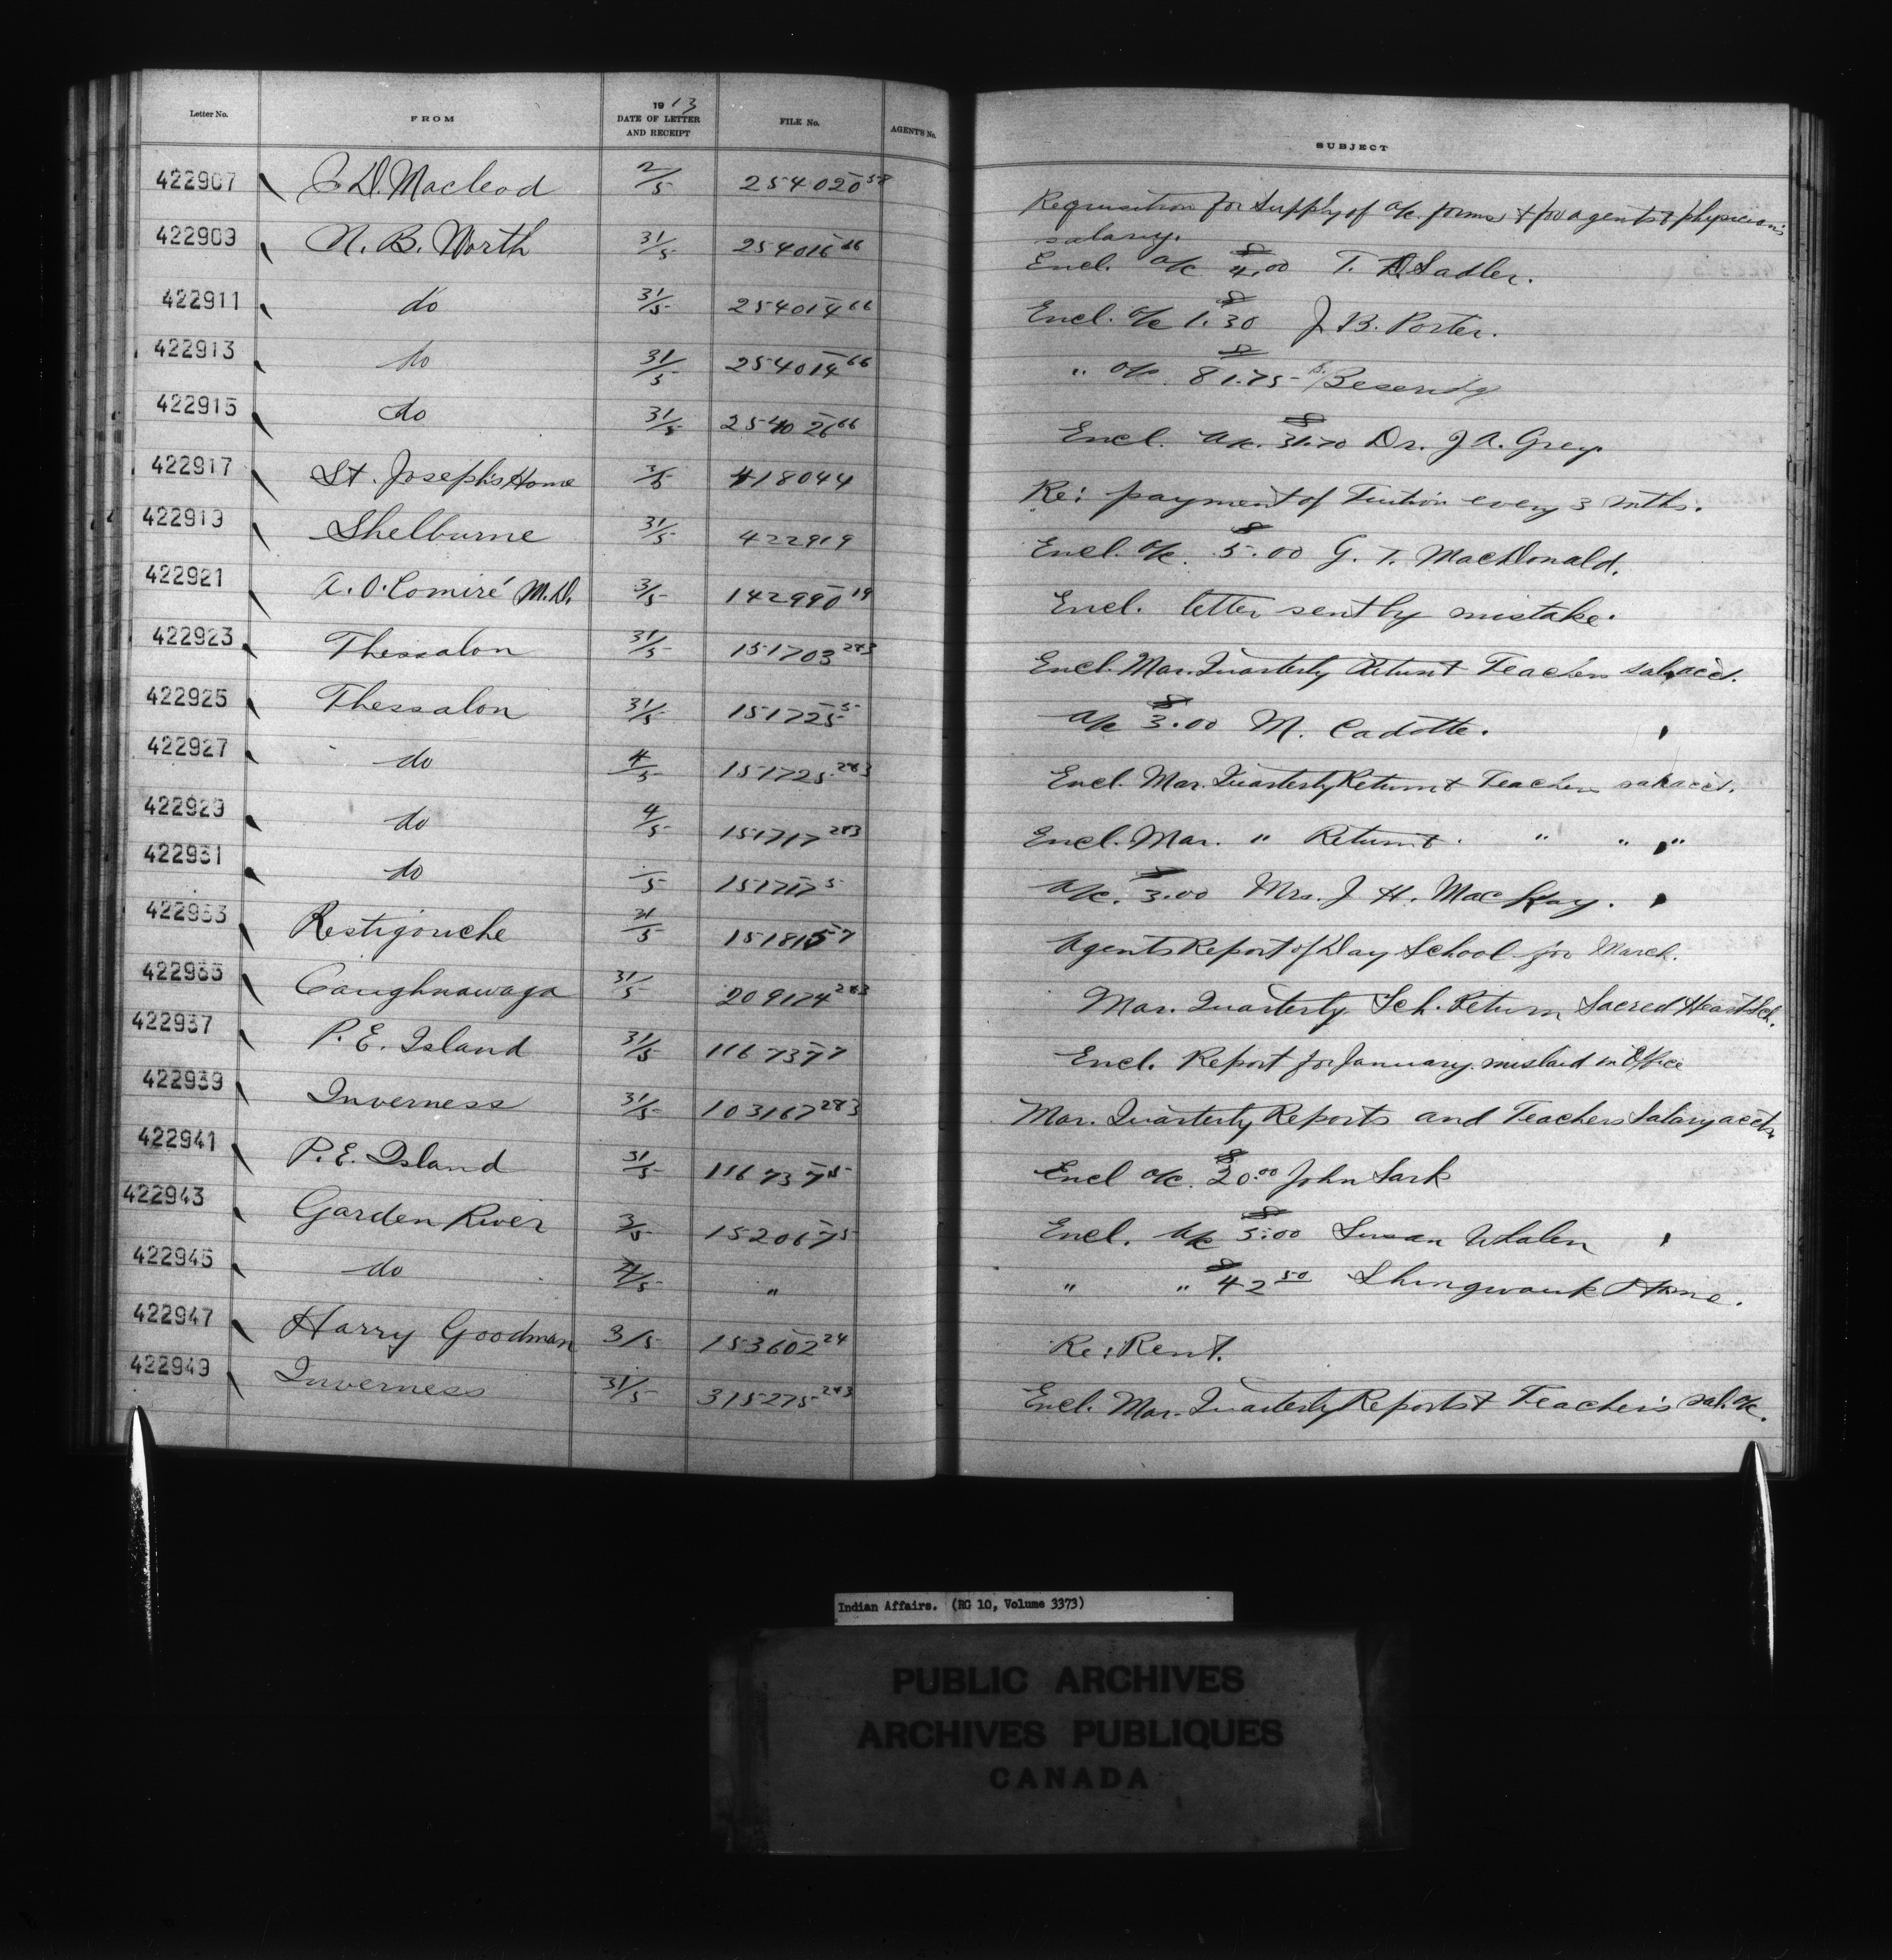 Letter No. FROM 1913 DATE OF LETTER AND RECEIPT FILE No. AGENT'S No. SUBJECT
422907 J. D. Macleod 2/5 254020 58 Requisition for Supply of a/c. forms & for agents & physician's
salary.
422909 N. B. North 31/5 254016 66 Encl. a/c $4.00 T. D. Sadler.
422911 do 31/5 254014 66 Encl. a/c 1.30 J. B. Porter.
422913 do 31/5 254014 66 " a/c. 81.75
422915 do 31/5 254026 66 Encl. a/c. 31.70 Dr. J. A. Grey.
422917 St. Joseph's Home 418044 Re: payment of Tuition every 3 mths.
422919 Shelburne 31/5 422919 Encl. a/c. $5.00 G. T. MacDonald.
422921 A. O. Comiré M.D. 3/5 142990 19 Encl. letter sent by mistake.
422923 Thessalon 31/5 151703 283 Encl. Mar. Quarterly Return & Teachers sal. acct.
422925 Thessalon 31/5 151725 5 a/c $3.00 M. Cadotte.
422927 do 4/5 151725 283 Encl. Mar. Quarterly Return & Teachers sal. acct.
422929 do 4/5 151717 283 Encl. Mar. " Return & " " "
422931 do /5 151717 5 a/c. $3.00 Mrs. J. H. MacKay.
422933 Restigouche 31/5 151815 7 Agents Report of Day School for March.
422935 Caughnawaga 31/5 209174 283 Mar. Quarterly Sch. Return Sacred Heart Sch.
422937 P. E. Island 31/5 116737 7 Encl. Report for January. mislaid in Office
422939 Inverness 31/5 103167 283 Mar. Quarterly Reports and Teachers Salary accts
422941 P. E. Island 31/5 116737 5 Encl a/c. $20.00 John Sark
422943 Garden River 3/5 152067 5 Encl. a/c $3.00 Susan Whalen
422945 do 4/5 " " " $42 50 Shingwauk Home.
422947 Harry Goodman 3/5 153602 24 Re: Rent.
422949 Inverness 31/5 315275 283 Encl. Mar. Quarterly Reports & Teacher's sal. a/c.
Indian Affairs. (RG 10, Volume 3373)
PUBLIC ARCHIVES
ARCHIVES PUBLIQUES
CANADA